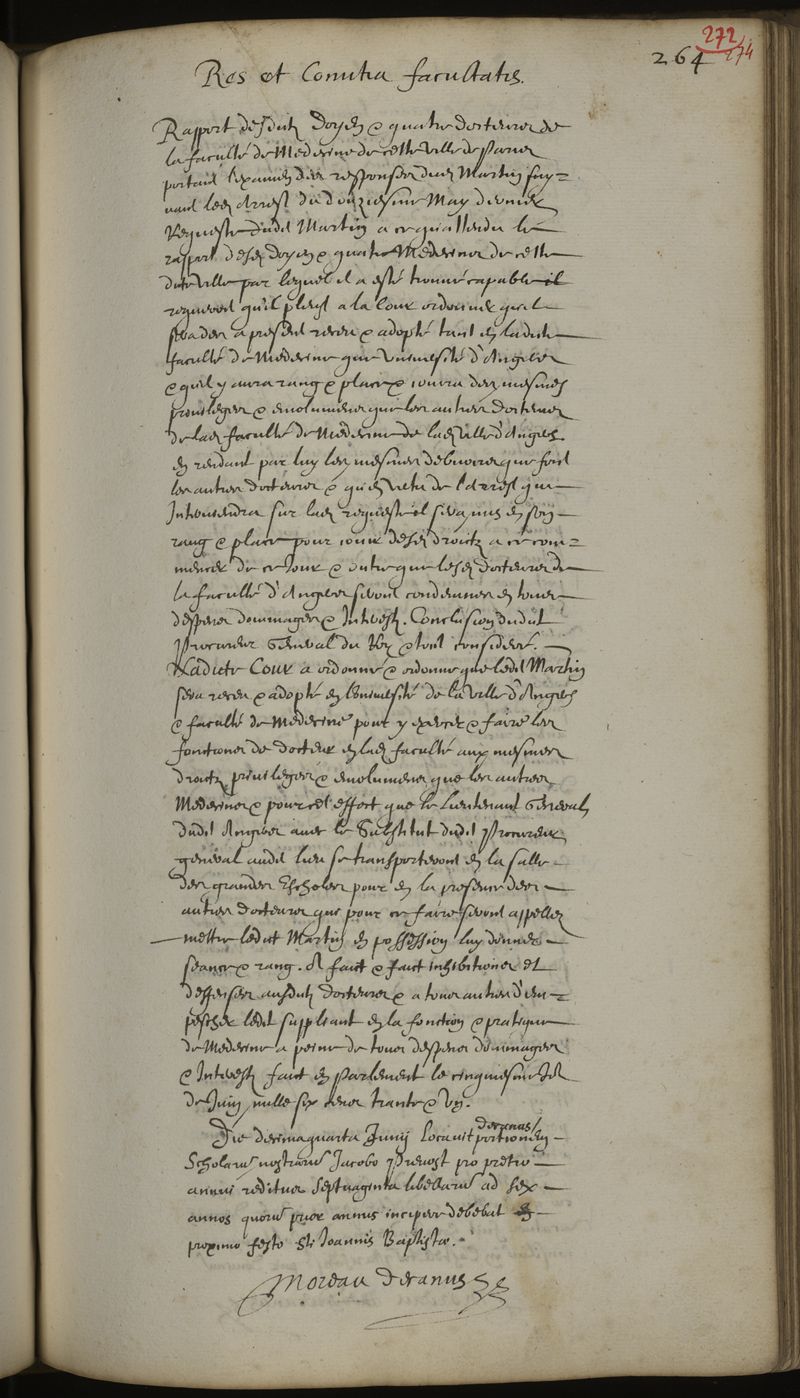 272
264 274
Res et Comitia facultatis.
Rapport desdictz Doyen & quatre docteurs de
la faculté de Medecine de cette ville de Paris
portant l'examen des responses dud Martin suy=
vant led Arrest du douziesme May dernier
Requeste dudit Martin a ce qu'attendu le
rapport desd doyen & quatre Medecins de cette
dite ville par lequel il a esté trouvé capable il
requeroit qu'il pleust a la Cour ordonner qu'il
sera des a present receu & adopté tant en ladite
faculté de Medecine que université d'Angers
& quil y aura rang & place & iouira des mesmes
privileges & emolumens que les autres docteurs
de lad faculté de Medecine de lad ville d'Angers
en rendant par luy les mesmes debvoirs que font
les autres docteurs & qu'en vertu de l'Arrest qui
Interviendra sur lad requeste il sera mis en son
rang & place pour iouir desd droictz a com=
mencer de ce Jour & outre que lesd docteurs de
la faculté d'Angers seront condamnes en tous
despens dommages & Interestz. Conclusion dudit
Procureur General du Roy & tout consideré.
Ladicte Cour a ordonné & ordonne que ledit Martin
sera receu & adopté en l'université de la ville d'Angers
& faculté de Medecine pour y exercer & faire les
fonctions de docteur en lad faculté aux mesmes
droictz privileges & emolumens que les autres
Medecins & pour cet effect que le Lieutenant General
dudit Angers avec le Substitut dudit Procureur
general audit lieu se transporteront en la salle
des grandes Escholes pour en la presence des
autres docteurs qui pour ce faire seront appellez
mettre ledit Martin en possession luy donner
seance & rang. A faict & faict inhibitions et
deffenses ausdictz docteurs & a tous autres d'em=
pescher ledit suppliant en la fonction & pratique
de Medecine a peine de tous despens dommages
& Interestz faict en Parlement le cinquiesme
de Juin mille six cens trante & un.
Die decimaquarta Junij Locavit decanus portionem
Scholarum nostrarum Jacobo Prevost pro pretio
annui reditus septuaginta libellarum ad sex
annos quorum prior annus incipere debebat
proximo festo Sti Joannis Baptistae.
Moreau decanus